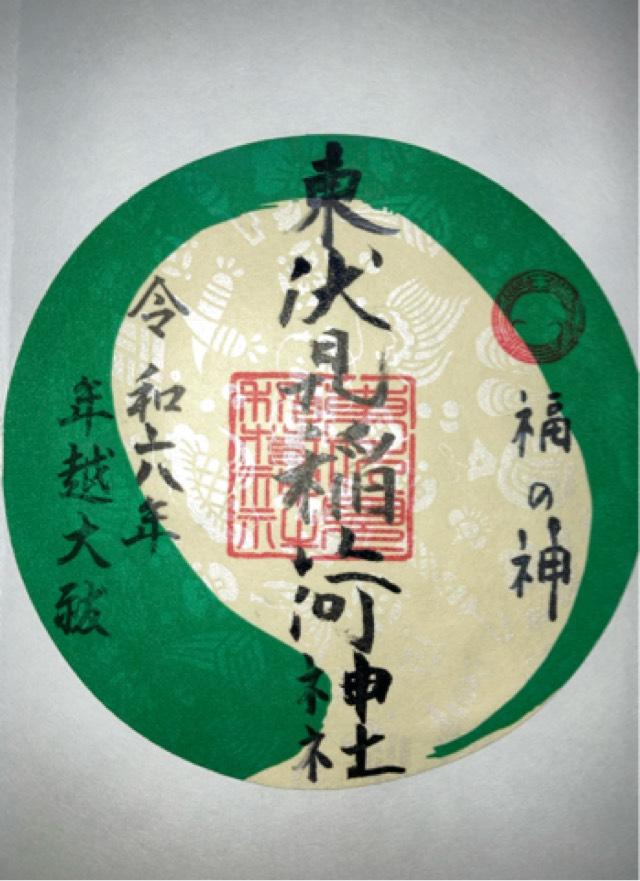 福の神
東伏見稲荷神社
令和六年
年越大祓